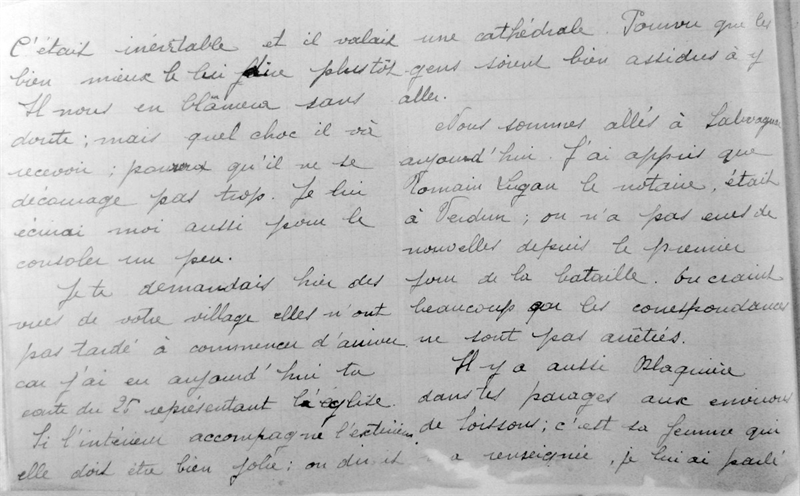 C'était inévitable et il valait
bien mieux le lui faire plustôt
Il nous en blâmera sans
doute ; mais quel choc il va
recevoir ; pourvu qu'il ne se
décourage pas trop. Je lui
écrirai moi aussi pour le
consoler un peu.
Je te demandais hier des
vues de votre village elles n'ont
pas tardé à commencer d'arriver
car j'ai eu aujourd'hui ta
carte du 25 représentant l'église.
Si l'intérieur accompagne l'extérieur
elle doit être bien jolie ; on dirait
une cathédrale. Pourvu que les
gens soient bien assidus à y
aller.
Nous sommes allés à
aujourd'hui. J'ai appris que
Romain Ligan le notaire, était
à Verdun ; on n'a pas eues de
nouvelles depuis le premier
jour de la bataille. On craint
beaucoup que les correspondances
ne sont pas arrêtiés.
Il y a aussi Blaquière
dans tes parages aux environs
de Soissons ; c'est sa femme qui
a renseignée, je lui ai parlé